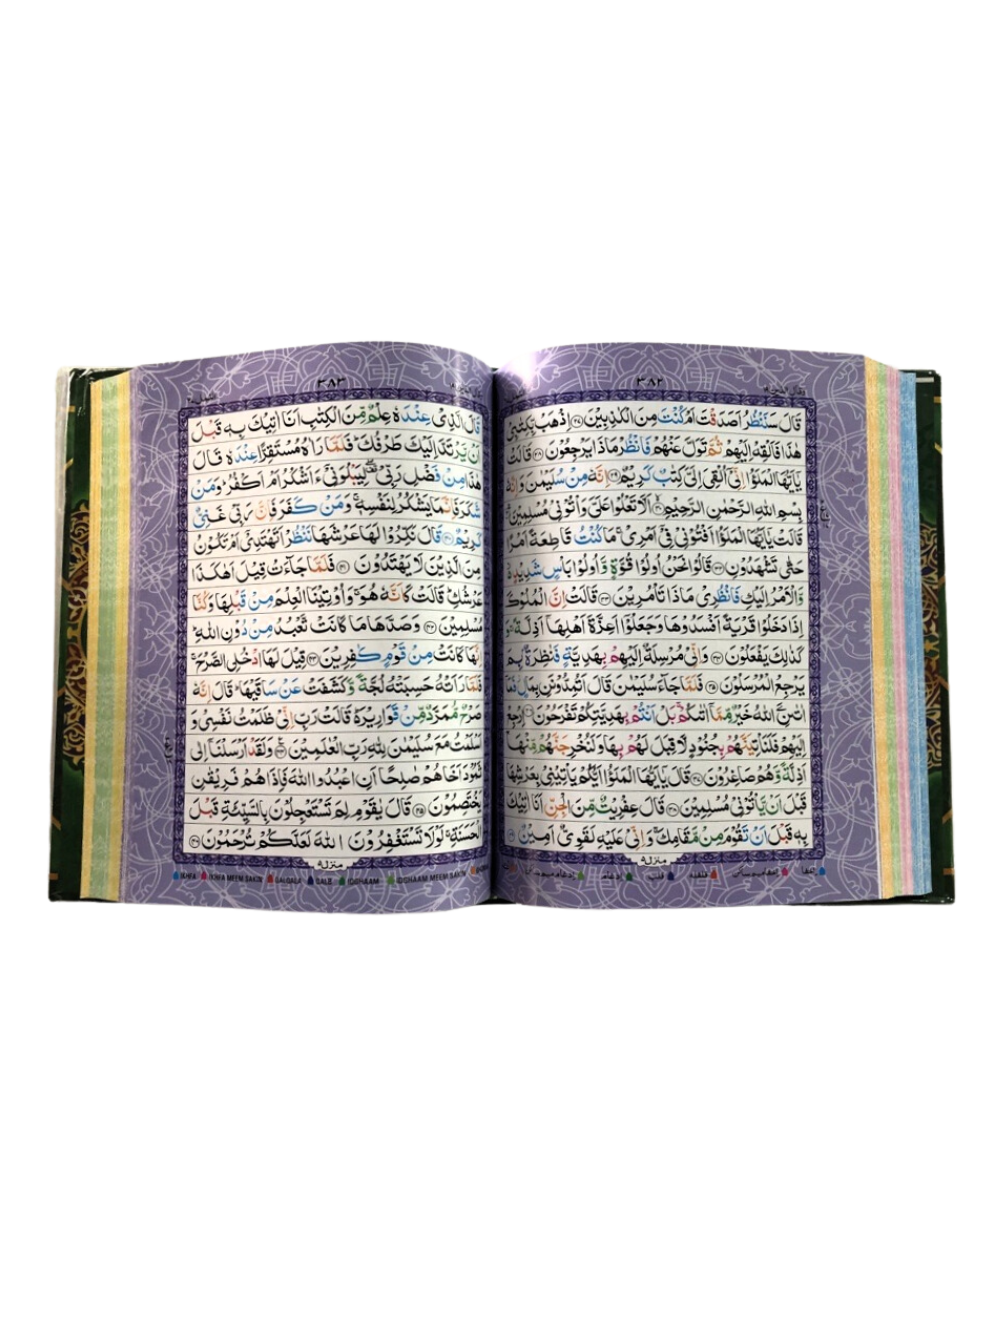 ۳۸۲
قَالَ سَنَنْظُرُ اَصَدَقْتَ اَمْ كُنْتَ مِنَ الْكٰذِبِيْنَ ﴿۲۷﴾ اِذْهَبْ بِّكِتٰبِيْ
هٰذَا فَاَلْقِهْ اِلَيْهِمْ ثُمَّ تَوَلَّ عَنْهُمْ فَانْظُرْ مَاذَا يَرْجِعُوْنَ ﴿۲۸﴾ قَالَتْ
يٰٓاَيُّهَا الْمَلَؤُا اِنِّيْٓ اُلْقِيَ اِلَيَّ كِتٰبٌ كَرِيْمٌ ﴿۲۹﴾ اِنَّهٗ مِنْ سُلَيْمٰنَ وَاِنَّهٗ
بِسْمِ اللّٰهِ الرَّحْمٰنِ الرَّحِيْمِ ﴿۳۰﴾ اَلَّا تَعْلُوْا عَلَيَّ وَاْتُوْنِيْ مُسْلِمِيْنَ ﴿۳۱﴾
قَالَتْ يٰٓاَيُّهَا الْمَلَؤُا اَفْتُوْنِيْ فِيْٓ اَمْرِيْ مَا كُنْتُ قَاطِعَةً اَمْرًا
حَتّٰى تَشْهَدُوْنِ ﴿۳۲﴾ قَالُوْا نَحْنُ اُولُوْا قُوَّةٍ وَّاُولُوْا بَاْسٍ شَدِيْدٍ
وَّالْاَمْرُ اِلَيْكِ فَانْظُرِيْ مَاذَا تَاْمُرِيْنَ ﴿۳۳﴾ قَالَتْ اِنَّ الْمُلُوْكَ
اِذَا دَخَلُوْا قَرْيَةً اَفْسَدُوْهَا وَجَعَلُوْٓا اَعِزَّةَ اَهْلِهَآ اَذِلَّةً وَ
كَذٰلِكَ يَفْعَلُوْنَ ﴿۳۴﴾ وَاِنِّيْ مُرْسِلَةٌ اِلَيْهِمْ بِهَدِيَّةٍ فَنٰظِرَةٌۢ بِمَ
يَرْجِعُ الْمُرْسَلُوْنَ ﴿۳۵﴾ فَلَمَّا جَآءَ سُلَيْمٰنَ قَالَ اَتُمِدُّوْنَنِ بِمَالٍ فَمَآ
اٰتٰىنِۦَ اللّٰهُ خَيْرٌ مِّمَّآ اٰتٰىكُمْ بَلْ اَنْتُمْ بِهَدِيَّتِكُمْ تَفْرَحُوْنَ ﴿۳۶﴾ اِرْجِعْ
اِلَيْهِمْ فَلَنَاْتِيَنَّهُمْ بِجُنُوْدٍ لَّا قِبَلَ لَهُمْ بِهَا وَلَنُخْرِجَنَّهُمْ مِّنْهَآ
اَذِلَّةً وَّهُمْ صَاغِرُوْنَ ﴿۳۷﴾ قَالَ يٰٓاَيُّهَا الْمَلَؤُا اَيُّكُمْ يَاْتِيْنِيْ بِعَرْشِهَا
قَبْلَ اَنْ يَّاْتُوْنِيْ مُسْلِمِيْنَ ﴿۳۸﴾ قَالَ عِفْرِيْتٌ مِّنَ الْجِنِّ اَنَا اٰتِيْكَ
بِهٖ قَبْلَ اَنْ تَقُوْمَ مِنْ مَّقَامِكَ وَاِنِّيْ عَلَيْهِ لَقَوِيٌّ اَمِيْنٌ ﴿۳۹﴾
منزل۵
اخفا
اخفا میم ساکن
قلقلہ
قلب
ادغام
ادغام میم ساکن
۳۸۳
قَالَ الَّذِيْ عِنْدَهٗ عِلْمٌ مِّنَ الْكِتٰبِ اَنَا اٰتِيْكَ بِهٖ قَبْلَ
اَنْ يَّرْتَدَّ اِلَيْكَ طَرْفُكَ فَلَمَّا رَاٰهُ مُسْتَقِرًّا عِنْدَهٗ قَالَ
هٰذَا مِنْ فَضْلِ رَبِّيْ لِيَبْلُوَنِيْٓ ءَاَشْكُرُ اَمْ اَكْفُرُ وَمَنْ
شَكَرَ فَاِنَّمَا يَشْكُرُ لِنَفْسِهٖ وَمَنْ كَفَرَ فَاِنَّ رَبِّيْ غَنِيٌّ
كَرِيْمٌ ﴿۴۰﴾ قَالَ نَكِّرُوْا لَهَا عَرْشَهَا نَنْظُرْ اَتَهْتَدِيْٓ اَمْ تَكُوْنُ
مِنَ الَّذِيْنَ لَا يَهْتَدُوْنَ ﴿۴۱﴾ فَلَمَّا جَآءَتْ قِيْلَ اَهٰكَذَا
عَرْشُكِ قَالَتْ كَاَنَّهٗ هُوَ وَاُوْتِيْنَا الْعِلْمَ مِنْ قَبْلِهَا وَكُنَّا
مُسْلِمِيْنَ ﴿۴۲﴾ وَصَدَّهَا مَا كَانَتْ تَّعْبُدُ مِنْ دُوْنِ اللّٰهِ
اِنَّهَا كَانَتْ مِنْ قَوْمٍ كٰفِرِيْنَ ﴿۴۳﴾ قِيْلَ لَهَا ادْخُلِي الصَّرْحَ
فَلَمَّا رَاَتْهُ حَسِبَتْهُ لُجَّةً وَّكَشَفَتْ عَنْ سَاقَيْهَا قَالَ اِنَّهٗ
صَرْحٌ مُّمَرَّدٌ مِّنْ قَوَارِيْرَ قَالَتْ رَبِّ اِنِّيْ ظَلَمْتُ نَفْسِيْ وَ
اَسْلَمْتُ مَعَ سُلَيْمٰنَ لِلّٰهِ رَبِّ الْعٰلَمِيْنَ ﴿۴۴﴾ وَلَقَدْ اَرْسَلْنَآ اِلٰى
ثَمُوْدَ اَخَاهُمْ صٰلِحًا اَنِ اعْبُدُوا اللّٰهَ فَاِذَا هُمْ فَرِيْقٰنِ
يَخْتَصِمُوْنَ ﴿۴۵﴾ قَالَ يٰقَوْمِ لِمَ تَسْتَعْجِلُوْنَ بِالسَّيِّئَةِ قَبْلَ
الْحَسَنَةِ لَوْلَا تَسْتَغْفِرُوْنَ اللّٰهَ لَعَلَّكُمْ تُرْحَمُوْنَ ﴿۴۶﴾
منزل۵
IKHFA IKHFA MEEM SAKIN QALQALA QALB IDGHAAM IDGHAAM MEEM SAKIN